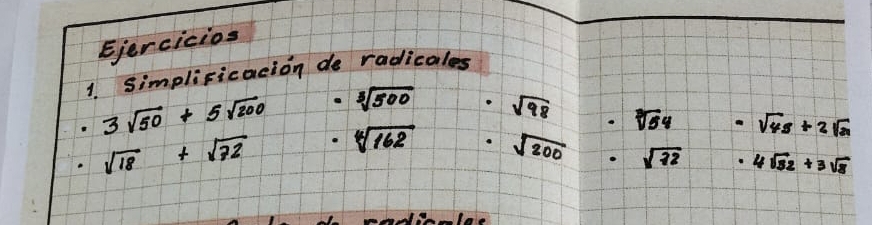 Ejercicios
1. Simplificación de radicales
· 3√50 + 5√200 · ∛500 · √98 · ∛54 · √45 + 2√
· √18 + √72 · ∜162 · √200 · √72 · 4√32 + 3√8
de radicales